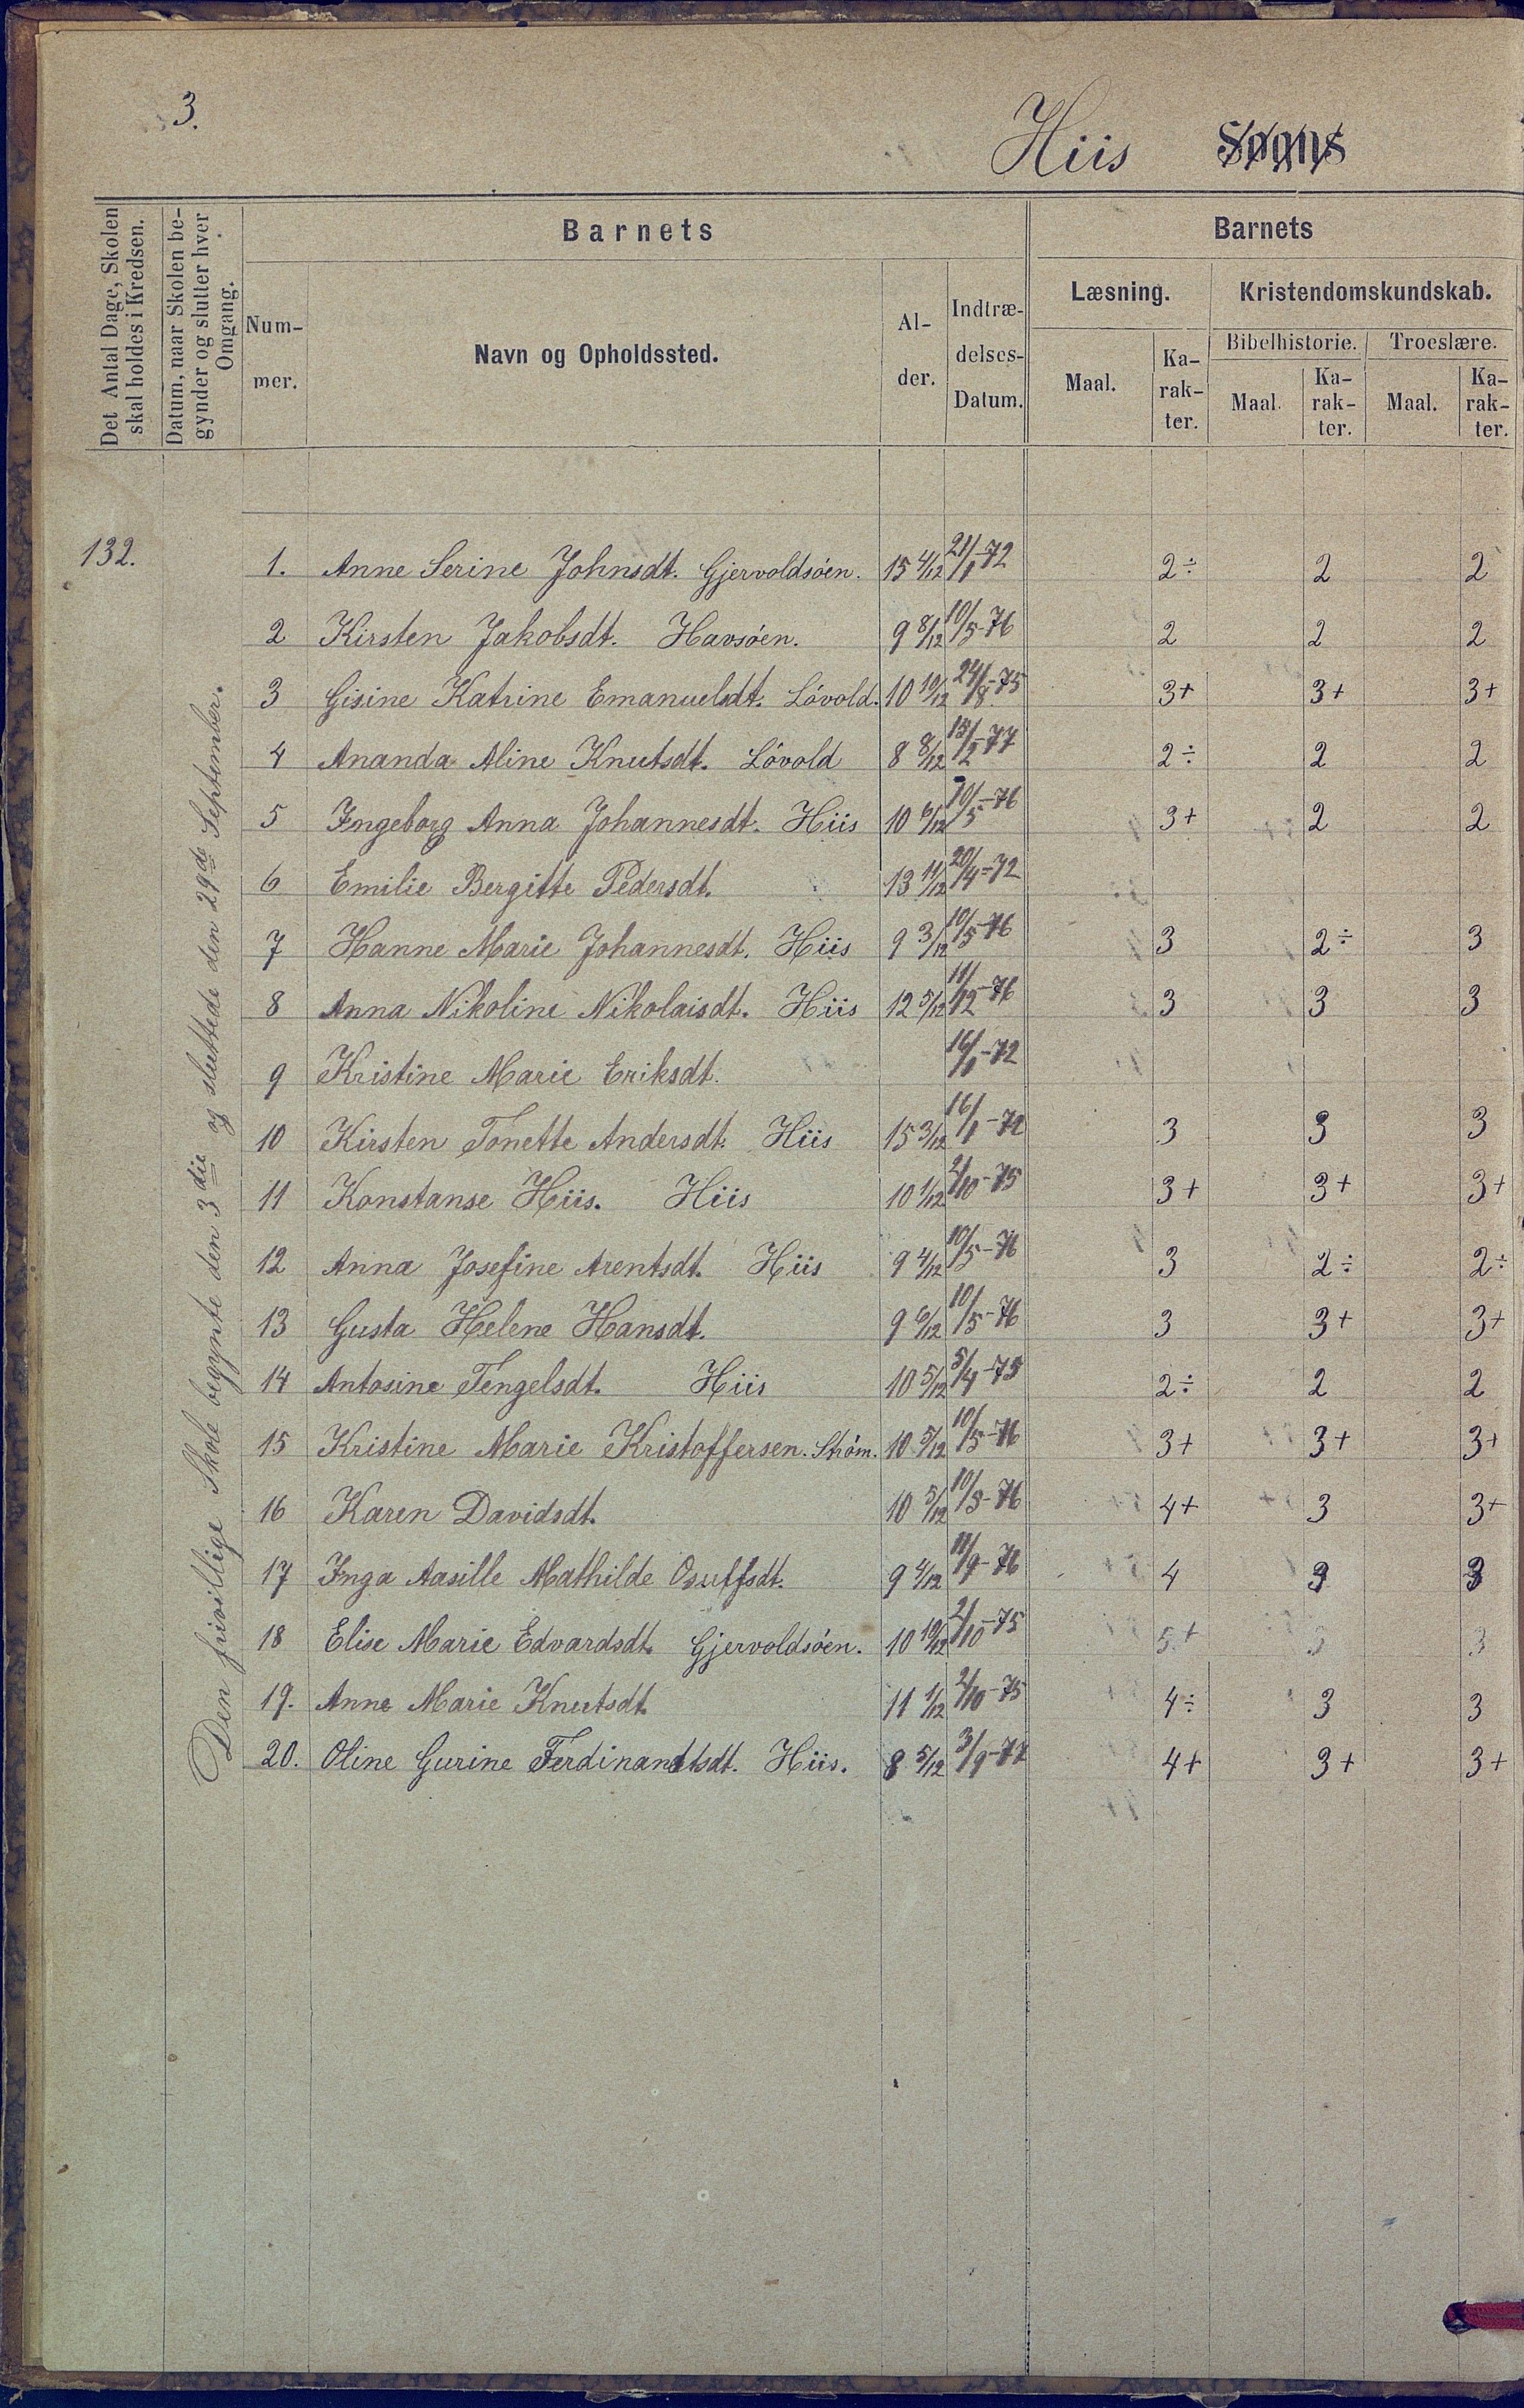 3.
Hiis Sogns
Det Antal Dage, Skolen skal holdes i Kredsen.
Datum, naar Skolen begynder og slutter hver Omgang.
Barnets
Num-
mer.
Navn og Opholdssted.
Al-
der.
Indtræ-
delses-
Datum.
Barnets
Læsning.
Kristendomskundskab.
Bibelhistorie. Troeslære.
Maal. Ka-rak-ter. Maal. Ka-rak-ter. Maal. Ka-rak-ter.
132.
Den frivillige Skole begynte den 3die og sluttede den 29de September.
1. Anne Serine Johnsdt. Gjervoldsöen. 15 4/12 21/1-72 2÷ 2 2
2 Kirsten Jakobsdt. Havsöen. 9 8/12 10/5-76 2 2 2
3 Gisine Katrine Emanuelsdt. Lövold. 10 10/12 24/8-75 3+ 3+ 3+
4 Ananda Aline Knutsdt. Lövold 8 8/12 15/2-77 2÷ 2 2
5 Ingeborg Anna Johannesdt. Hiis 10 6/12 10/5-76 3+ 2 2
6 Emilie Bergitte Pedersdt. 13 11/12 20/4-72
7 Hanne Marie Johannesdt. Hiis 9 3/12 10/5-76 3 2÷ 3
8 Anna Nikoline Nikolaisdt. Hiis 12 5/12 11/12-76 3 3 3
9 Kristine Marie Eriksdt. 16/1-72
10 Kirsten Tonette Andersdt. Hiis 15 3/12 16/1-72 3 3 3
11 Konstanse Hiis. Hiis 10 1/12 2/10-75 3+ 3+ 3+
12 Anna Josefine Arentsdt. Hiis 9 4/12 10/5-76 3 2÷ 2÷
13 Gusta Helene Hansdt. 9 6/12 10/5-76 3 3+ 3+
14 Antosine Tengelsdt. Hiis 10 5/12 5/4-75 2÷ 2 2
15 Kristine Marie Kristoffersen. Ström. 10 5/12 10/5-76 3+ 3+ 3+
16 Karen Davidsdt. 10 5/12 10/5-76 4+ 3 3+
17 Inga Aasille Mathilde Osuffsdt. 9 4/12 11/9-76 4 3 3
18 Elise Marie Edvardsdt. Gjervoldsöen. 10 10/12 2/10-75 5+ 3 3
19. Anne Marie Knutsdt. 11 1/12 2/10-75 4÷ 3 3
20. Oline Gurine Ferdinandtsdt. Hiis. 8 5/12 3/9-77 4+ 3+ 3+